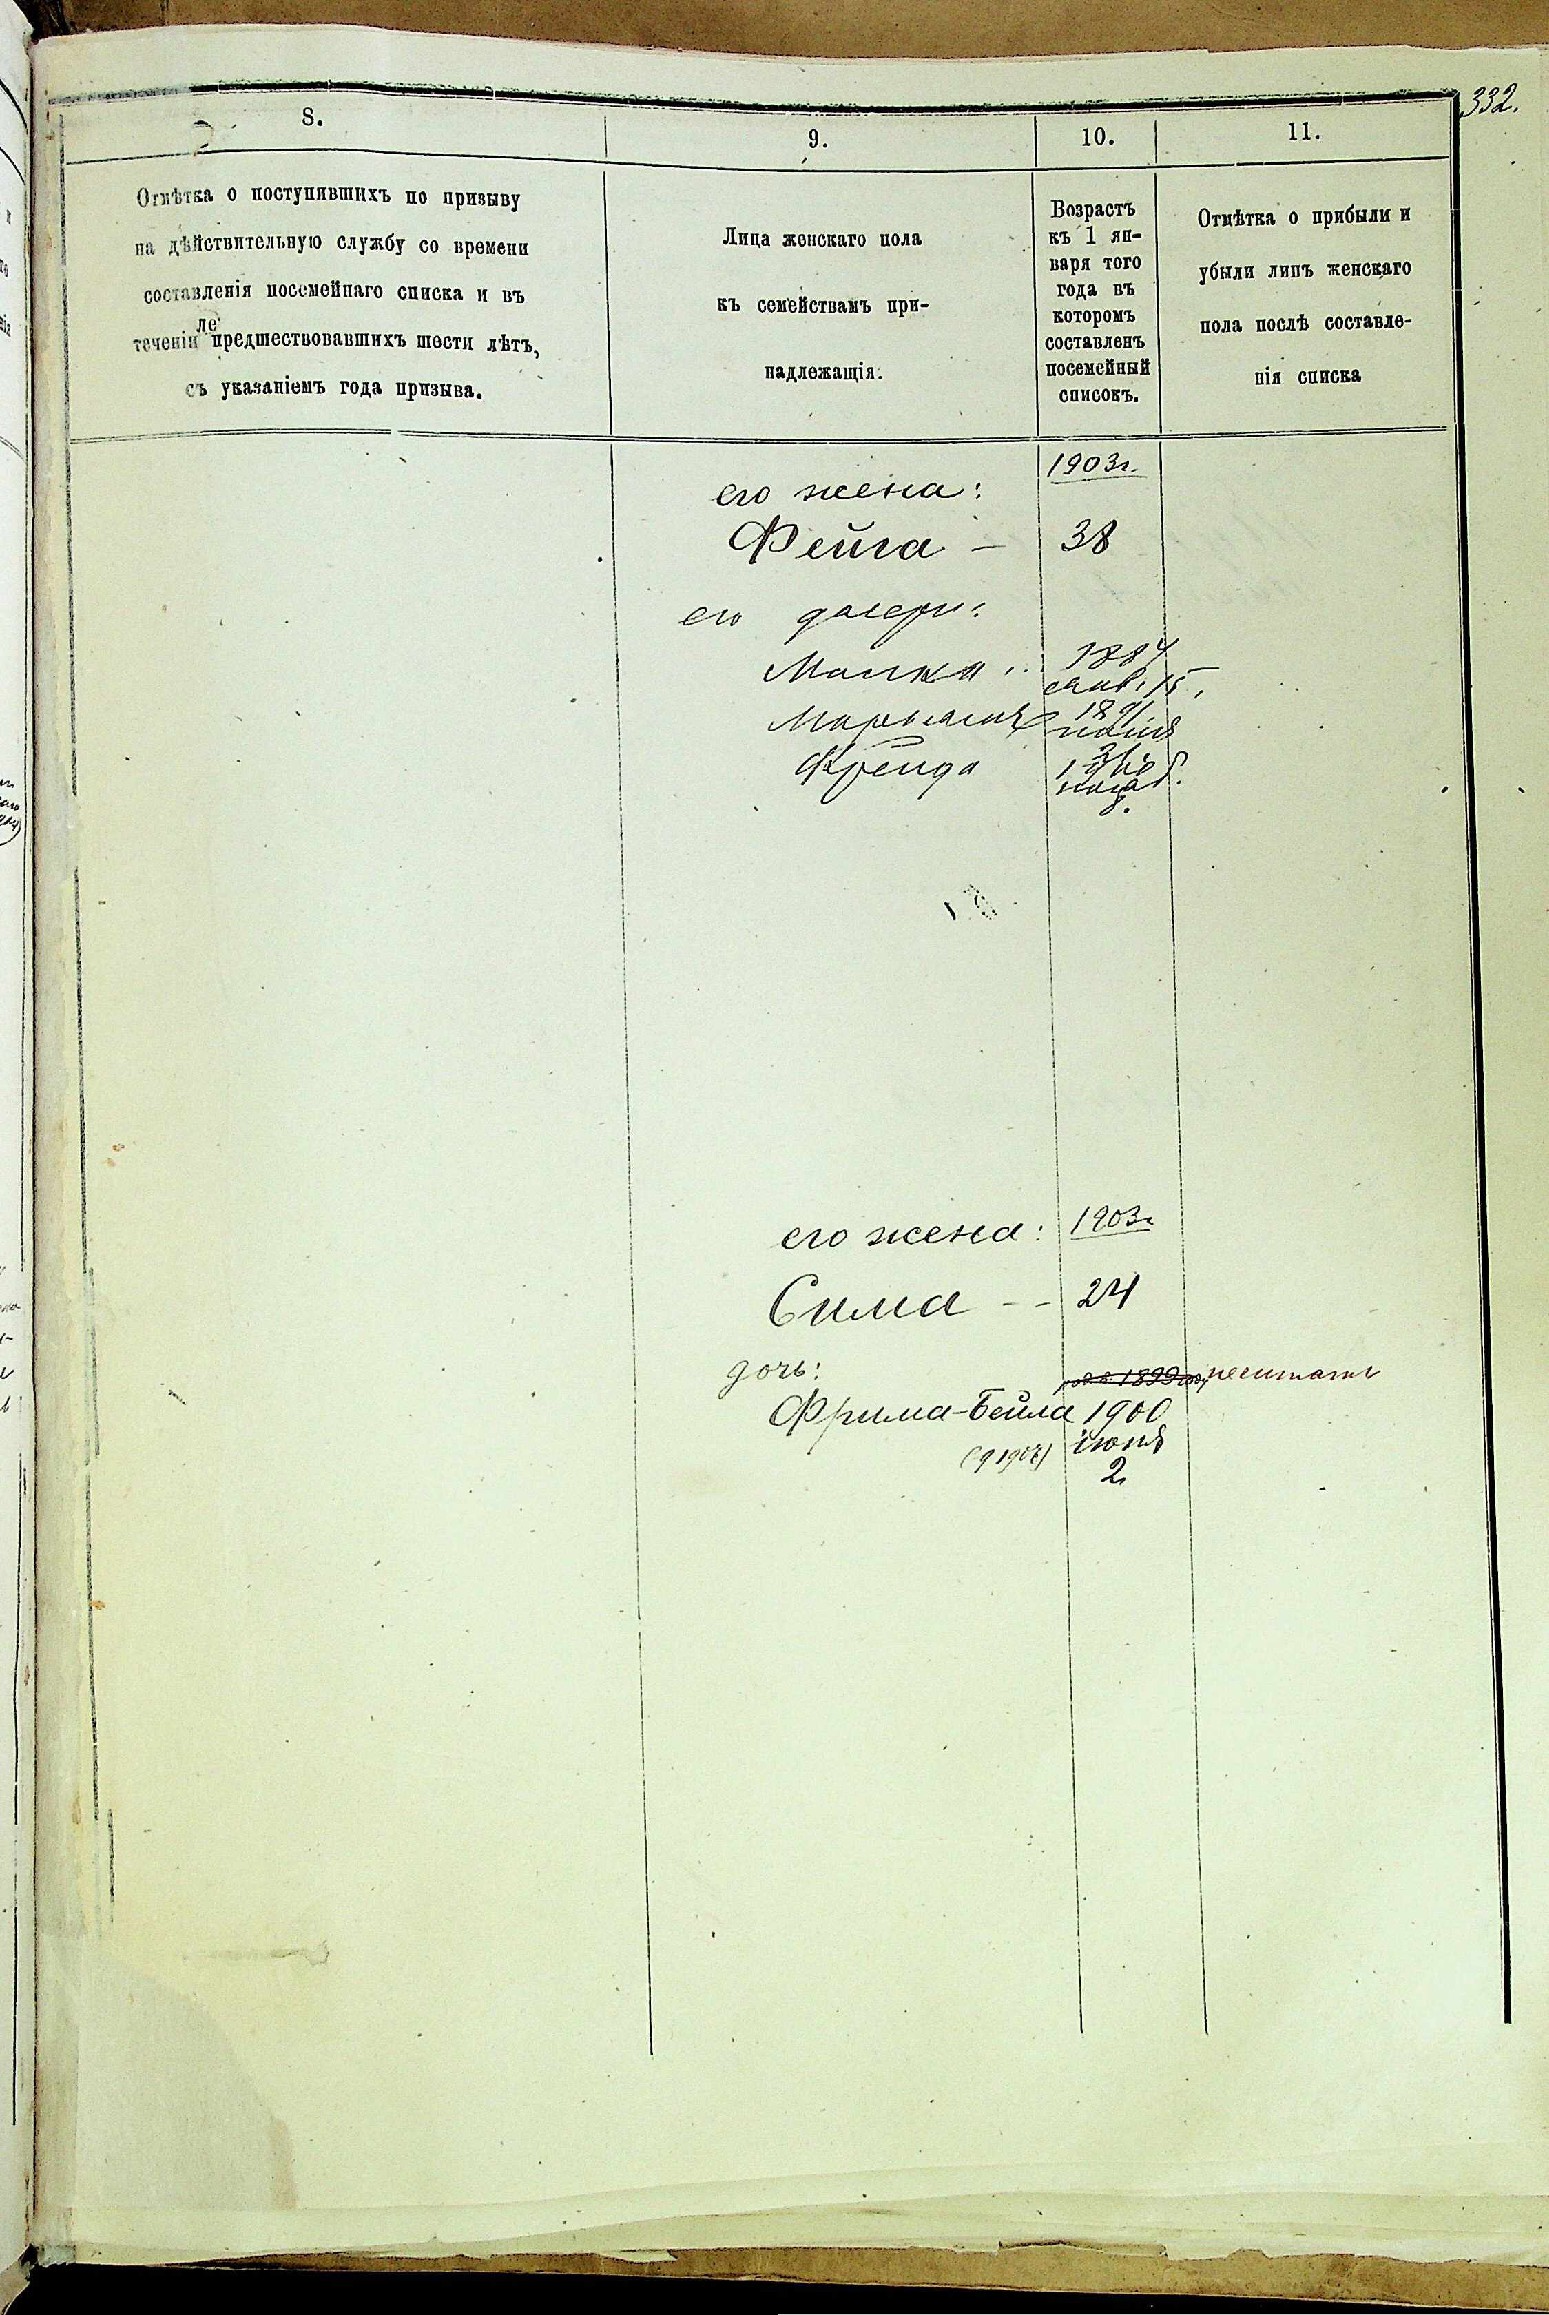 332.
8.
9.
10.
11.
Отмѣтка о поступившихъ по призыву
на дѣйствительную службу со времени
составленія посемейнаго списка и въ
теченіи предшествовавшихъ шести лѣтъ,
съ указаніемъ года призыва.
Лица женскаго пола
къ семействамъ при-
надлежащія.
Возрастъ
къ 1 ян-
варя того
года въ
которомъ
составленъ
посемейный
списокъ.
Отмѣтка о прибыли и
убыли лицъ женскаго
пола послѣ составле-
нія списка
1903г.
его жена:
Фейга – 38
его дочери:
Малка 1884
янв. 15.
Марьямъ 1891
Фрейда
его жена: 1903г
Сима -- 24
дочь: 1899 несчитать
Фрима-Бейла 1900
іюня
2